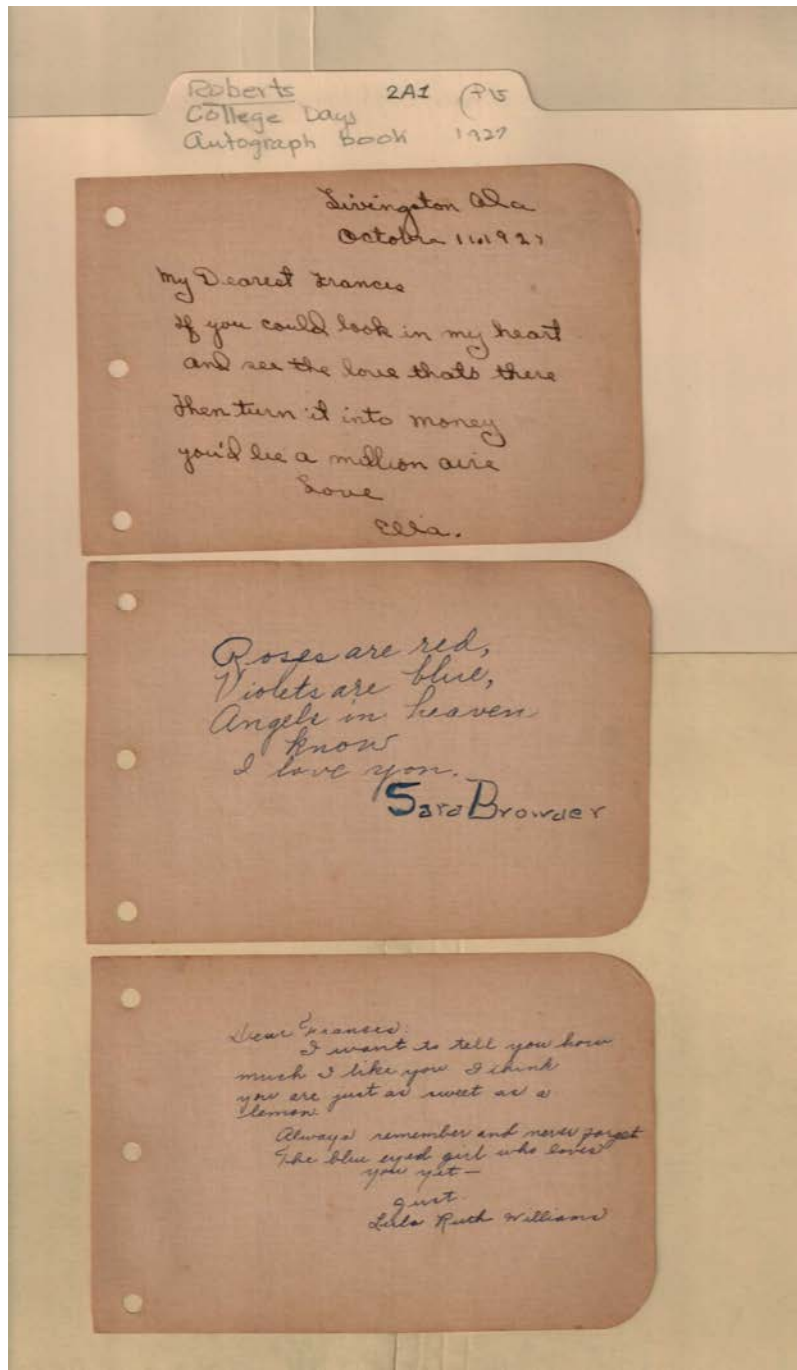 Roberts 2A1
College Days
Autograph Book 1927
Livingston Ala
October 11, 1927
My Dearest Frances
If you could look in my heart
and see the love thats there
Then turn it into money
you'd be a million aire
Love
Ella.
Roses are red,
Violets are blue,
Angels in heaven
know
I love you.
Sara Browder
Dear Frances:
I want to tell you how
much I like you I think
you are just as sweet as a
lemon
Always remember and never forget
The blue eyed girl who loves
you yet—
Just
Lula Ruth Williams